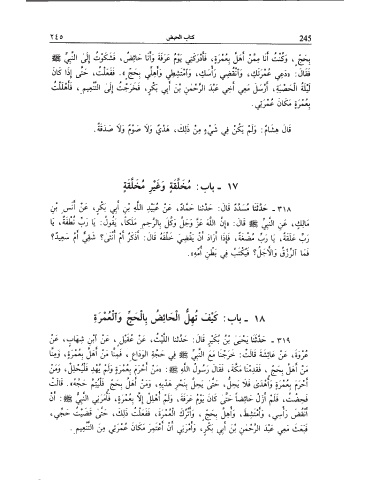 245 كتاب الحيض ٢٤٥
بِحَجٍّ، وَكُنْتُ أَنَا مِمَّنْ أَهَلَّ بِعُمْرَةٍ، فَأَدْرَكَنِي يَوْمُ عَرَفَةَ وَأَنَا حَائِضٌ، فَشَكَوْتُ إِلَى النَّبِيِّ ﷺ
فَقَالَ: «دَعِي عُمْرَتَكِ، وَانْقُضِي رَأْسَكِ، وَامْتَشِطِي وَأَهِلِّي بِحَجٍّ». فَفَعَلْتُ، حَتَّى إِذَا كَانَ
لَيْلَةُ الْحَصْبَةِ، أَرْسَلَ مَعِي أَخِي عَبْدَ الرَّحْمٰنِ بْنَ أَبِي بَكْرٍ، فَخَرَجْتُ إِلَى التَّنْعِيمِ، فَأَهْلَلْتُ
بِعُمْرَةٍ مَكَانَ عُمْرَتِي.
قَالَ هِشَامٌ: وَلَمْ يَكُنْ فِي شَيْءٍ مِنْ ذٰلِكَ، هَدْيٌ وَلَا صَوْمٌ وَلَا صَدَقَةٌ.
١٧ - باب: مُخَلَّقَةٍ وَغَيْرِ مُخَلَّقَةٍ
٣١٨ - حَدَّثَنَا مُسَدَّدٌ قَالَ: حَدَّثَنَا حَمَّادٌ، عَنْ عُبَيْدِ اللَّهِ بْنِ أَبِي بَكْرٍ، عَنْ أَنَسِ بْنِ
مَالِكٍ، عَنِ النَّبِيِّ ﷺ قَالَ: «إِنَّ اللَّهَ عَزَّ وَجَلَّ وَكَّلَ بِالرَّحِمِ مَلَكًا، يَقُولُ: يَا رَبِّ نُطْفَةٌ، يَا
رَبِّ عَلَقَةٌ، يَا رَبِّ مُضْغَةٌ، فَإِذَا أَرَادَ أَنْ يَقْضِيَ خَلْقَهُ قَالَ: أَذَكَرٌ أَمْ أُنْثَى؟ شَقِيٌّ أَمْ سَعِيدٌ؟
فَمَا الرِّزْقُ وَالْأَجَلُ؟ فَيُكْتَبُ فِي بَطْنِ أُمِّهِ».
١٨ - باب: كَيْفَ تُهِلُّ الْحَائِضُ بِالْحَجِّ وَالْعُمْرَةِ
٣١٩ - حَدَّثَنَا يَحْيَى بْنُ بُكَيْرٍ قَالَ: حَدَّثَنَا اللَّيْثُ، عَنْ عُقَيْلٍ، عَنِ ابْنِ شِهَابٍ، عَنْ
عُرْوَةَ، عَنْ عَائِشَةَ قَالَتْ: خَرَجْنَا مَعَ النَّبِيِّ ﷺ فِي حَجَّةِ الْوَدَاعِ، فَمِنَّا مَنْ أَهَلَّ بِعُمْرَةٍ، وَمِنَّا
مَنْ أَهَلَّ بِحَجٍّ، فَقَدِمْنَا مَكَّةَ، فَقَالَ رَسُولُ اللَّهِ ﷺ: «مَنْ أَحْرَمَ بِعُمْرَةٍ وَلَمْ يُهْدِ فَلْيُحْلِلْ، وَمَنْ
أَحْرَمَ بِعُمْرَةٍ وَأَهْدَى فَلَا يَحِلُّ، حَتَّى يَحِلَّ بِنَحْرِ هَدْيِهِ، وَمَنْ أَهَلَّ بِحَجٍّ فَلْيُتِمَّ حَجَّهُ». قَالَتْ
فَحِضْتُ، فَلَمْ أَزَلْ حَائِضًا حَتَّى كَانَ يَوْمُ عَرَفَةَ، وَلَمْ أُهْلِلْ إِلَّا بِعُمْرَةٍ، فَأَمَرَنِي النَّبِيُّ ﷺ: أَنْ
أَنْقُضَ رَأْسِي، وَأَمْتَشِطَ، وَأُهِلَّ بِحَجٍّ، وَأَتْرُكَ الْعُمْرَةَ، فَفَعَلْتُ ذٰلِكَ، حَتَّى قَضَيْتُ حَجِّي،
فَبَعَثَ مَعِي عَبْدَ الرَّحْمٰنِ بْنَ أَبِي بَكْرٍ، وَأَمَرَنِي أَنْ أَعْتَمِرَ مَكَانَ عُمْرَتِي مِنَ التَّنْعِيمِ.